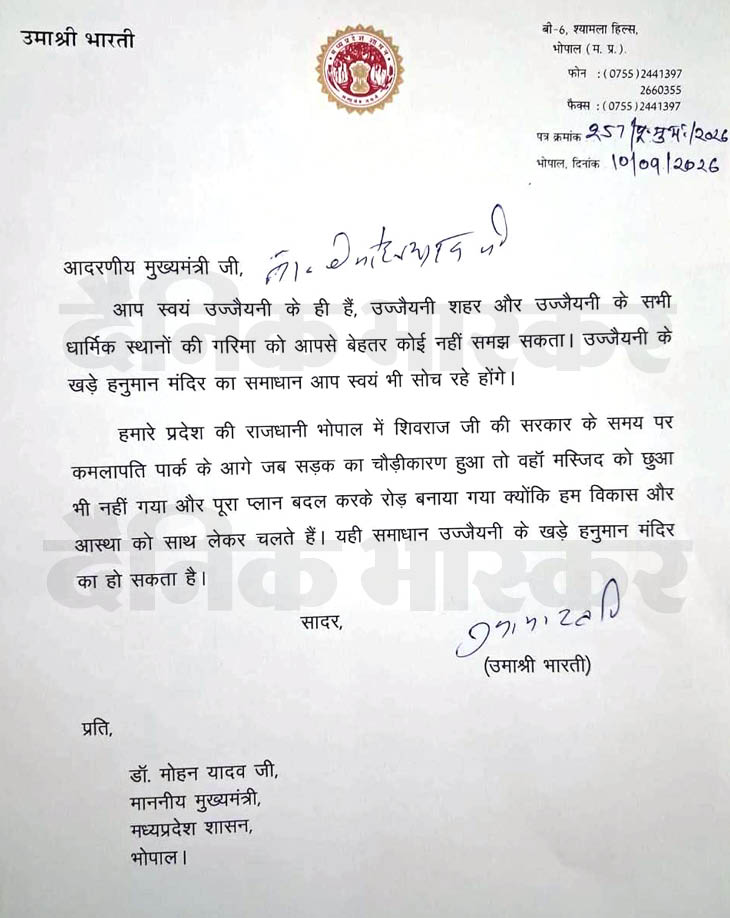 उमाश्री भारती
बी-6, श्यामला हिल्स,
भोपाल (म. प्र.).
फोन : (0755) 2441397
2660355
फैक्स : (0755) 2441397
पत्र क्रमांक 257/पू.मु.मं./2026
भोपाल, दिनांक 10/09/2026
मध्यप्रदेश शासन
आदरणीय मुख्यमंत्री जी,
आप स्वयं उज्जैयनी के ही हैं, उज्जैयनी शहर और उज्जैयनी के सभी
धार्मिक स्थानों की गरिमा को आपसे बेहतर कोई नहीं समझ सकता। उज्जैयनी के
खड़े हनुमान मंदिर का समाधान आप स्वयं भी सोच रहे होंगे।
हमारे प्रदेश की राजधानी भोपाल में शिवराज जी की सरकार के समय पर
कमलापति पार्क के आगे जब सड़क का चौड़ीकरण हुआ तो वहॉ मस्जिद को छुआ
भी नहीं गया और पूरा प्लान बदल करके रोड़ बनाया गया क्योंकि हम विकास और
आस्था को साथ लेकर चलते हैं। यही समाधान उज्जैयनी के खड़े हनुमान मंदिर
का हो सकता है।
सादर,
(उमाश्री भारती)
प्रति,
डॉ. मोहन यादव जी,
माननीय मुख्यमंत्री,
मध्यप्रदेश शासन,
भोपाल।
दैनिक भास्कर
दैनिक भास्कर